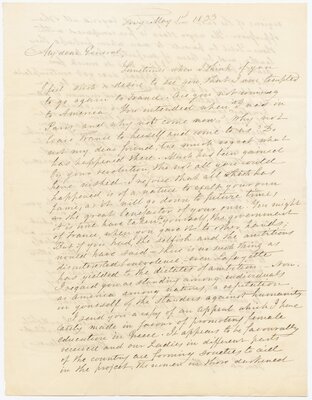 Troy May 1st 1833
My dear General,
Sometimes when I think of you
I feel such a desire to see you that I am tempted
to go again to France. Are you not coming
to America? You intended when I was in
Paris and why not come now? Why not
leave France to herself and come to us? Do
not my dear friend, too much regret what
has happened there. Much has been gained
by your revolution tho' not all you would
have wished. I rejoice that all which has
happened is of a nature to exalt your own
fame, as it will go down to future times
as the great benefactor of your race. You might
at a time have taken yourself the government
of France when you gave it to other hands.
But if you had the selfish and the ambitious
would have said - there is no such thing as
disinterested benevolence - even Lafayette
has yielded to the dictates of ambition. Now
I regard you as standing among individuals
as America among nations, a refutation
in yourself of the slanders against humanity.
I send you a copy of an appeal which I have
lately made in favour of promoting female
education in Greece. It appears to be favourably
received and our Ladies in different parts
of the country are forming societies to aid
in the project. The women in those darkened